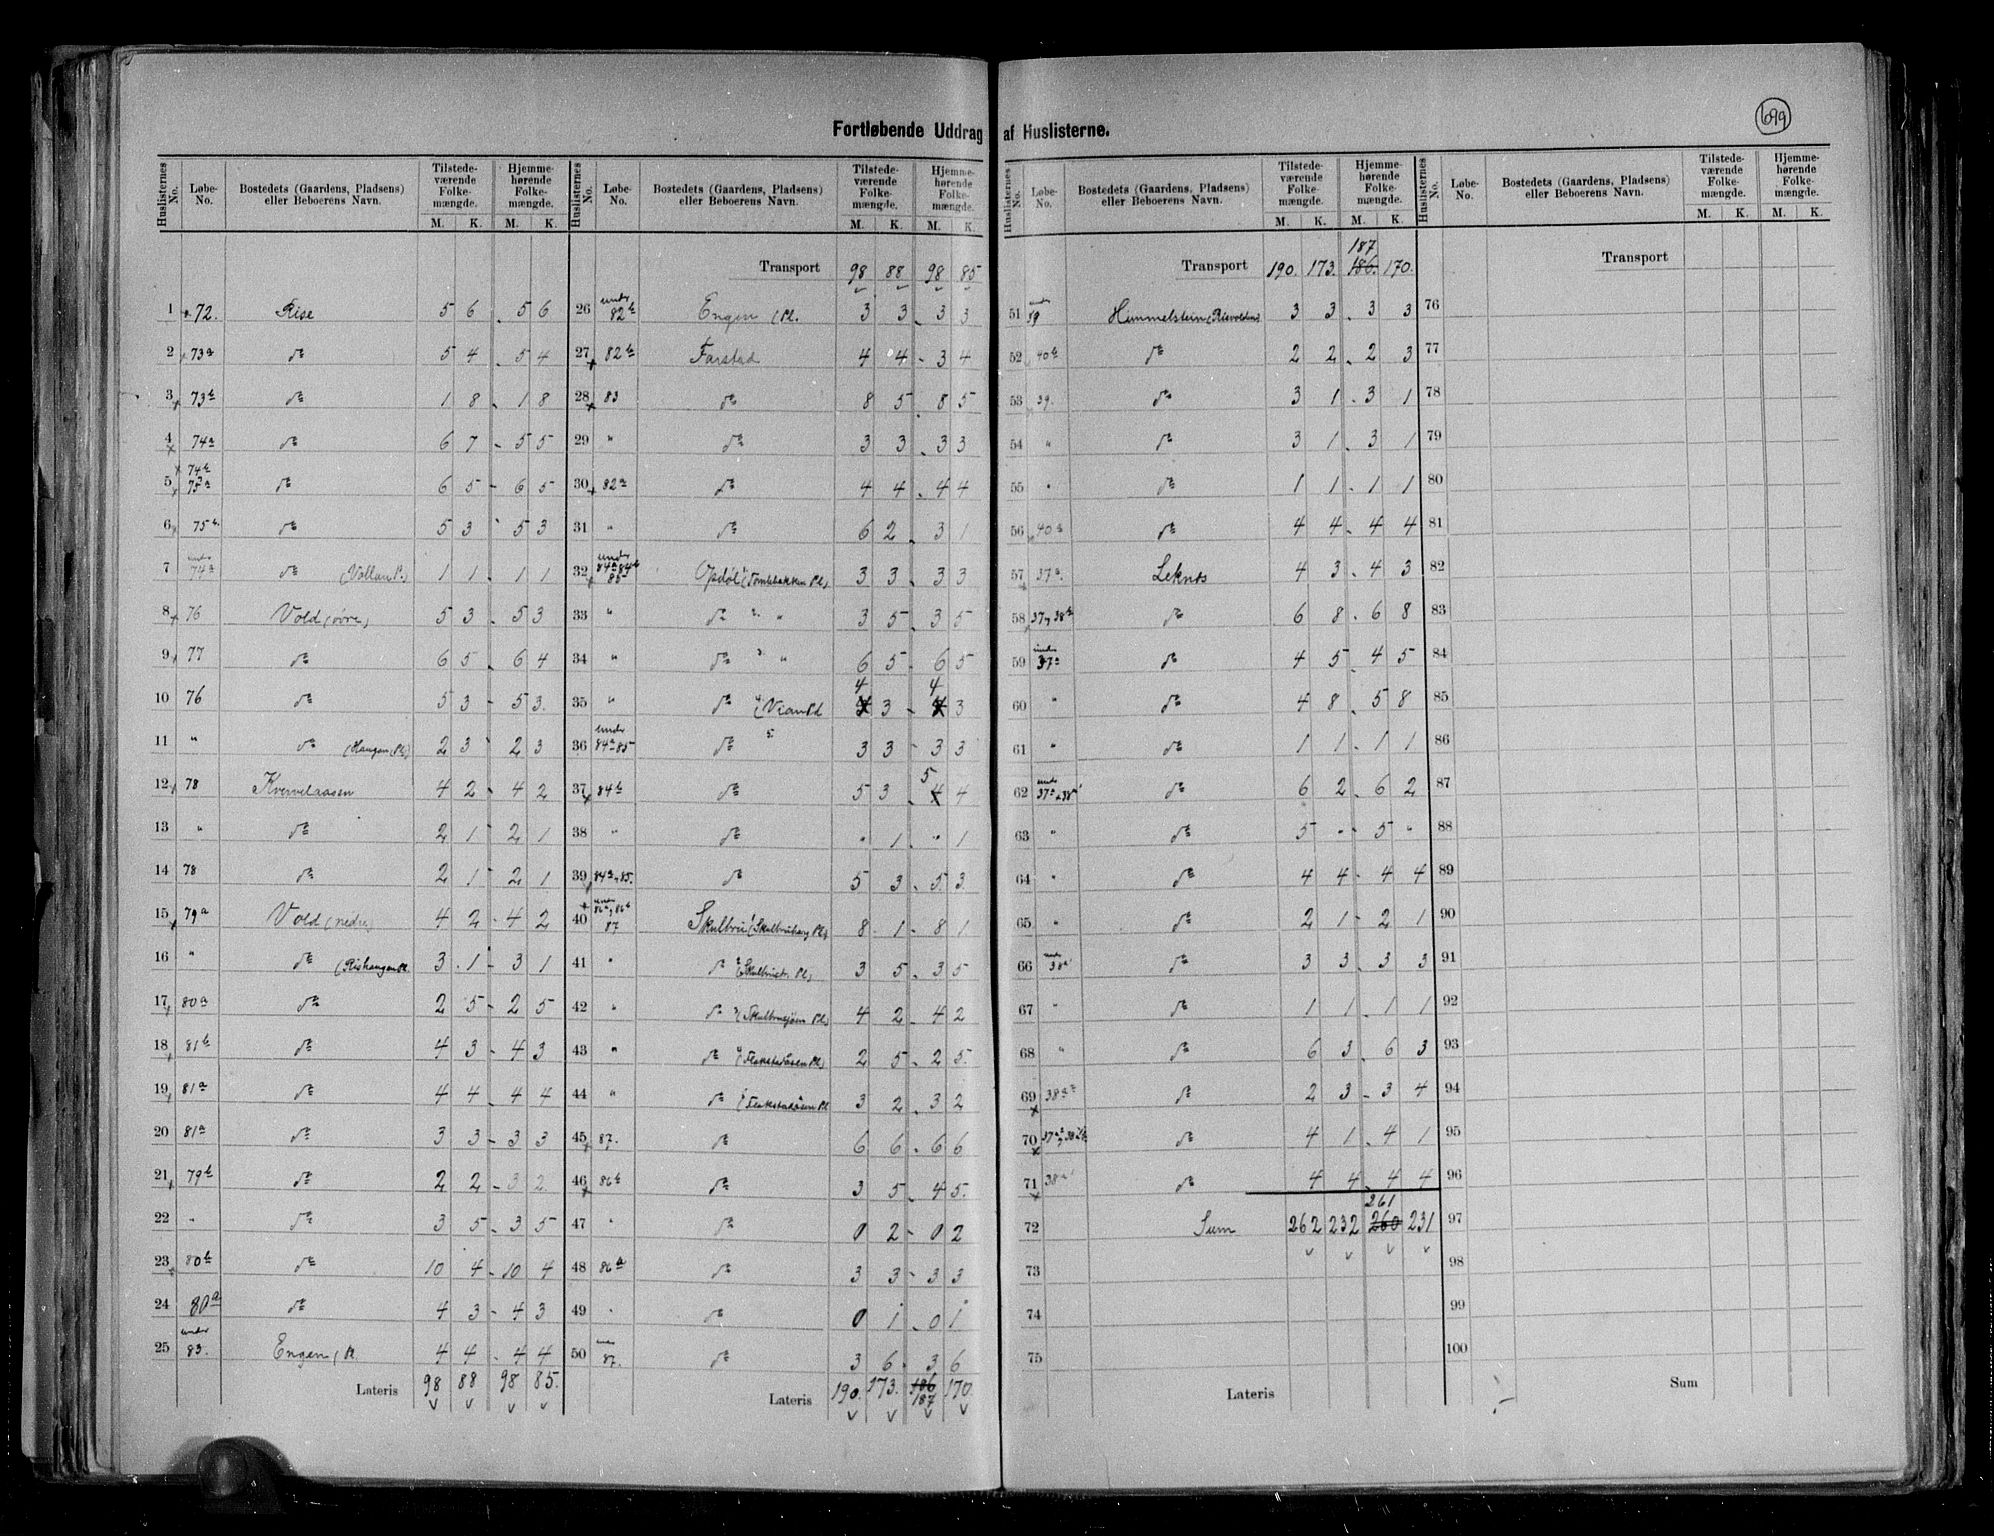 699
Fortløbende Uddrag af Huslisterne.
Huslisternes No. Løbe-No. Bostedets (Gaardens, Pladsens) eller Beboerens Navn. Tilstedeværende Folkemængde. M. K. Hjemmehørende Folkemængde. M. K.
1 72. Rise 5 6 5 6
2 73a do 5 4 5 4
3 73b do 1 8 1 8
4 74a do 6 7 5 5
5 74b 75a do 6 5 6 5
6 75b do 5 3 5 3
7 under 74a do (Vollan Pl.) 1 1 1 1
8 76 Vold (øvre) 5 3 5 3
9 77 do 6 5 6 4
10 76 do 5 3 5 3.
11 " do (Haugen Pl) 2 3 2 3
12 78 Kvervelaasen 4 2 4 2
13 " do 2 1 2 1
14 78 do 2 1 2 1
15 79a Vold (nedre) 4 2 4 2
16 " do (Rishaugen Pl. 3 1 3 1
17 80a do 2 5 2 5
18 81b do 4 3 4 3
19 81a do 4 4 4 4
20 81a do 3 3 3 3
21 79b do 2 2 3 2
22 " do 3 5 3 5
23 80b do 10 4 10 4
24 80a do 4 3 4 3
25 under 83. Engen (Pl. 4 4 4 4
Lateris 98 88 98 85.
Huslisternes No. Løbe-No. Bostedets (Gaardens, Pladsens) eller Beboerens Navn. Tilstedeværende Folkemængde. M. K. Hjemmehørende Folkemængde. M. K.
Transport 98 88 98 85
26 under 82b Engen (Pl. 3 3 3 3
27 82b Farstad 4 4 3 4
28 83 do 8 5 8 5
29 " do 3 3 3 3
30 82a do 4 4 4 4
31 " do 6 2 3 1
32 under 84a 84b 85 Opdøl 3 3 3 3
33 " do " " 3 5 3 5
34 " do " " 6 5 6 5
35 " do 4 3 4 3
36 under 84a 85 do 3 3 3 3
37 84b do 5 3 5 4 4
38 " do " 1 " 1
39 84a, 85. do 5 3 5 3.
40 under 86a, 86b 87 Skulbru 8 1 8 1
41 " do 3 5 3 5
42 " do 4 2 4 2
43 " do 2 5 2 5
44 " do 3 2 3 2
45 87. do 6 6 6 6
46 86b do 3 5 4 5.
47 " do 0 2 0 2
48 86a do 3 3 3 3
49 " do 0 1 0 1
50 under 87. do 3 6 3 6
Lateris 190. 173. 186 187 170.
Huslisternes No. Løbe-No. Bostedets (Gaardens, Pladsens) eller Beboerens Navn. Tilstedeværende Folkemængde. M. K. Hjemmehørende Folkemængde. M. K.
Transport 190. 173. 187 186. 170.
51 under 39 Himmelstein (Risvolden) 3 3 3 3
52 40b do 2 2 2 3
53 39. do 3 1 3 1
54 " do 3 1 3 1
55 " do 1 1 1 1
56 40a do 4 4 4 4
57 37a. Leknes 4 3 4 3
58 do 6 8 6 8
59 under 37a do 4 5 4 5
60 " do 4 8 5 8
61 " do 1 1 1 1
62 under do 6 2 6 2
63 " do 5 " 5 "
64 " do 4 4 4 4
65 " do 2 1 2 1
66 under 38a do 3 3 3 3
67 " do 1 1 1 1
68 " do 6 3 6 3
69 do 2 3 3 4
70 do 4 1 4 1
71 do 4 4 4 4
72 Sum 262 232 261 260 231
73
74
75
Lateris
Huslisternes No. Løbe-No. Bostedets (Gaardens, Pladsens) eller Beboerens Navn. Tilstedeværende Folkemængde. M. K. Hjemmehørende Folkemængde. M. K.
Transport
76
77
78
79
80
81
82
83
84
85
86
87
88
89
90
91
92
93
94
95
96
97
98
99
100
Sum